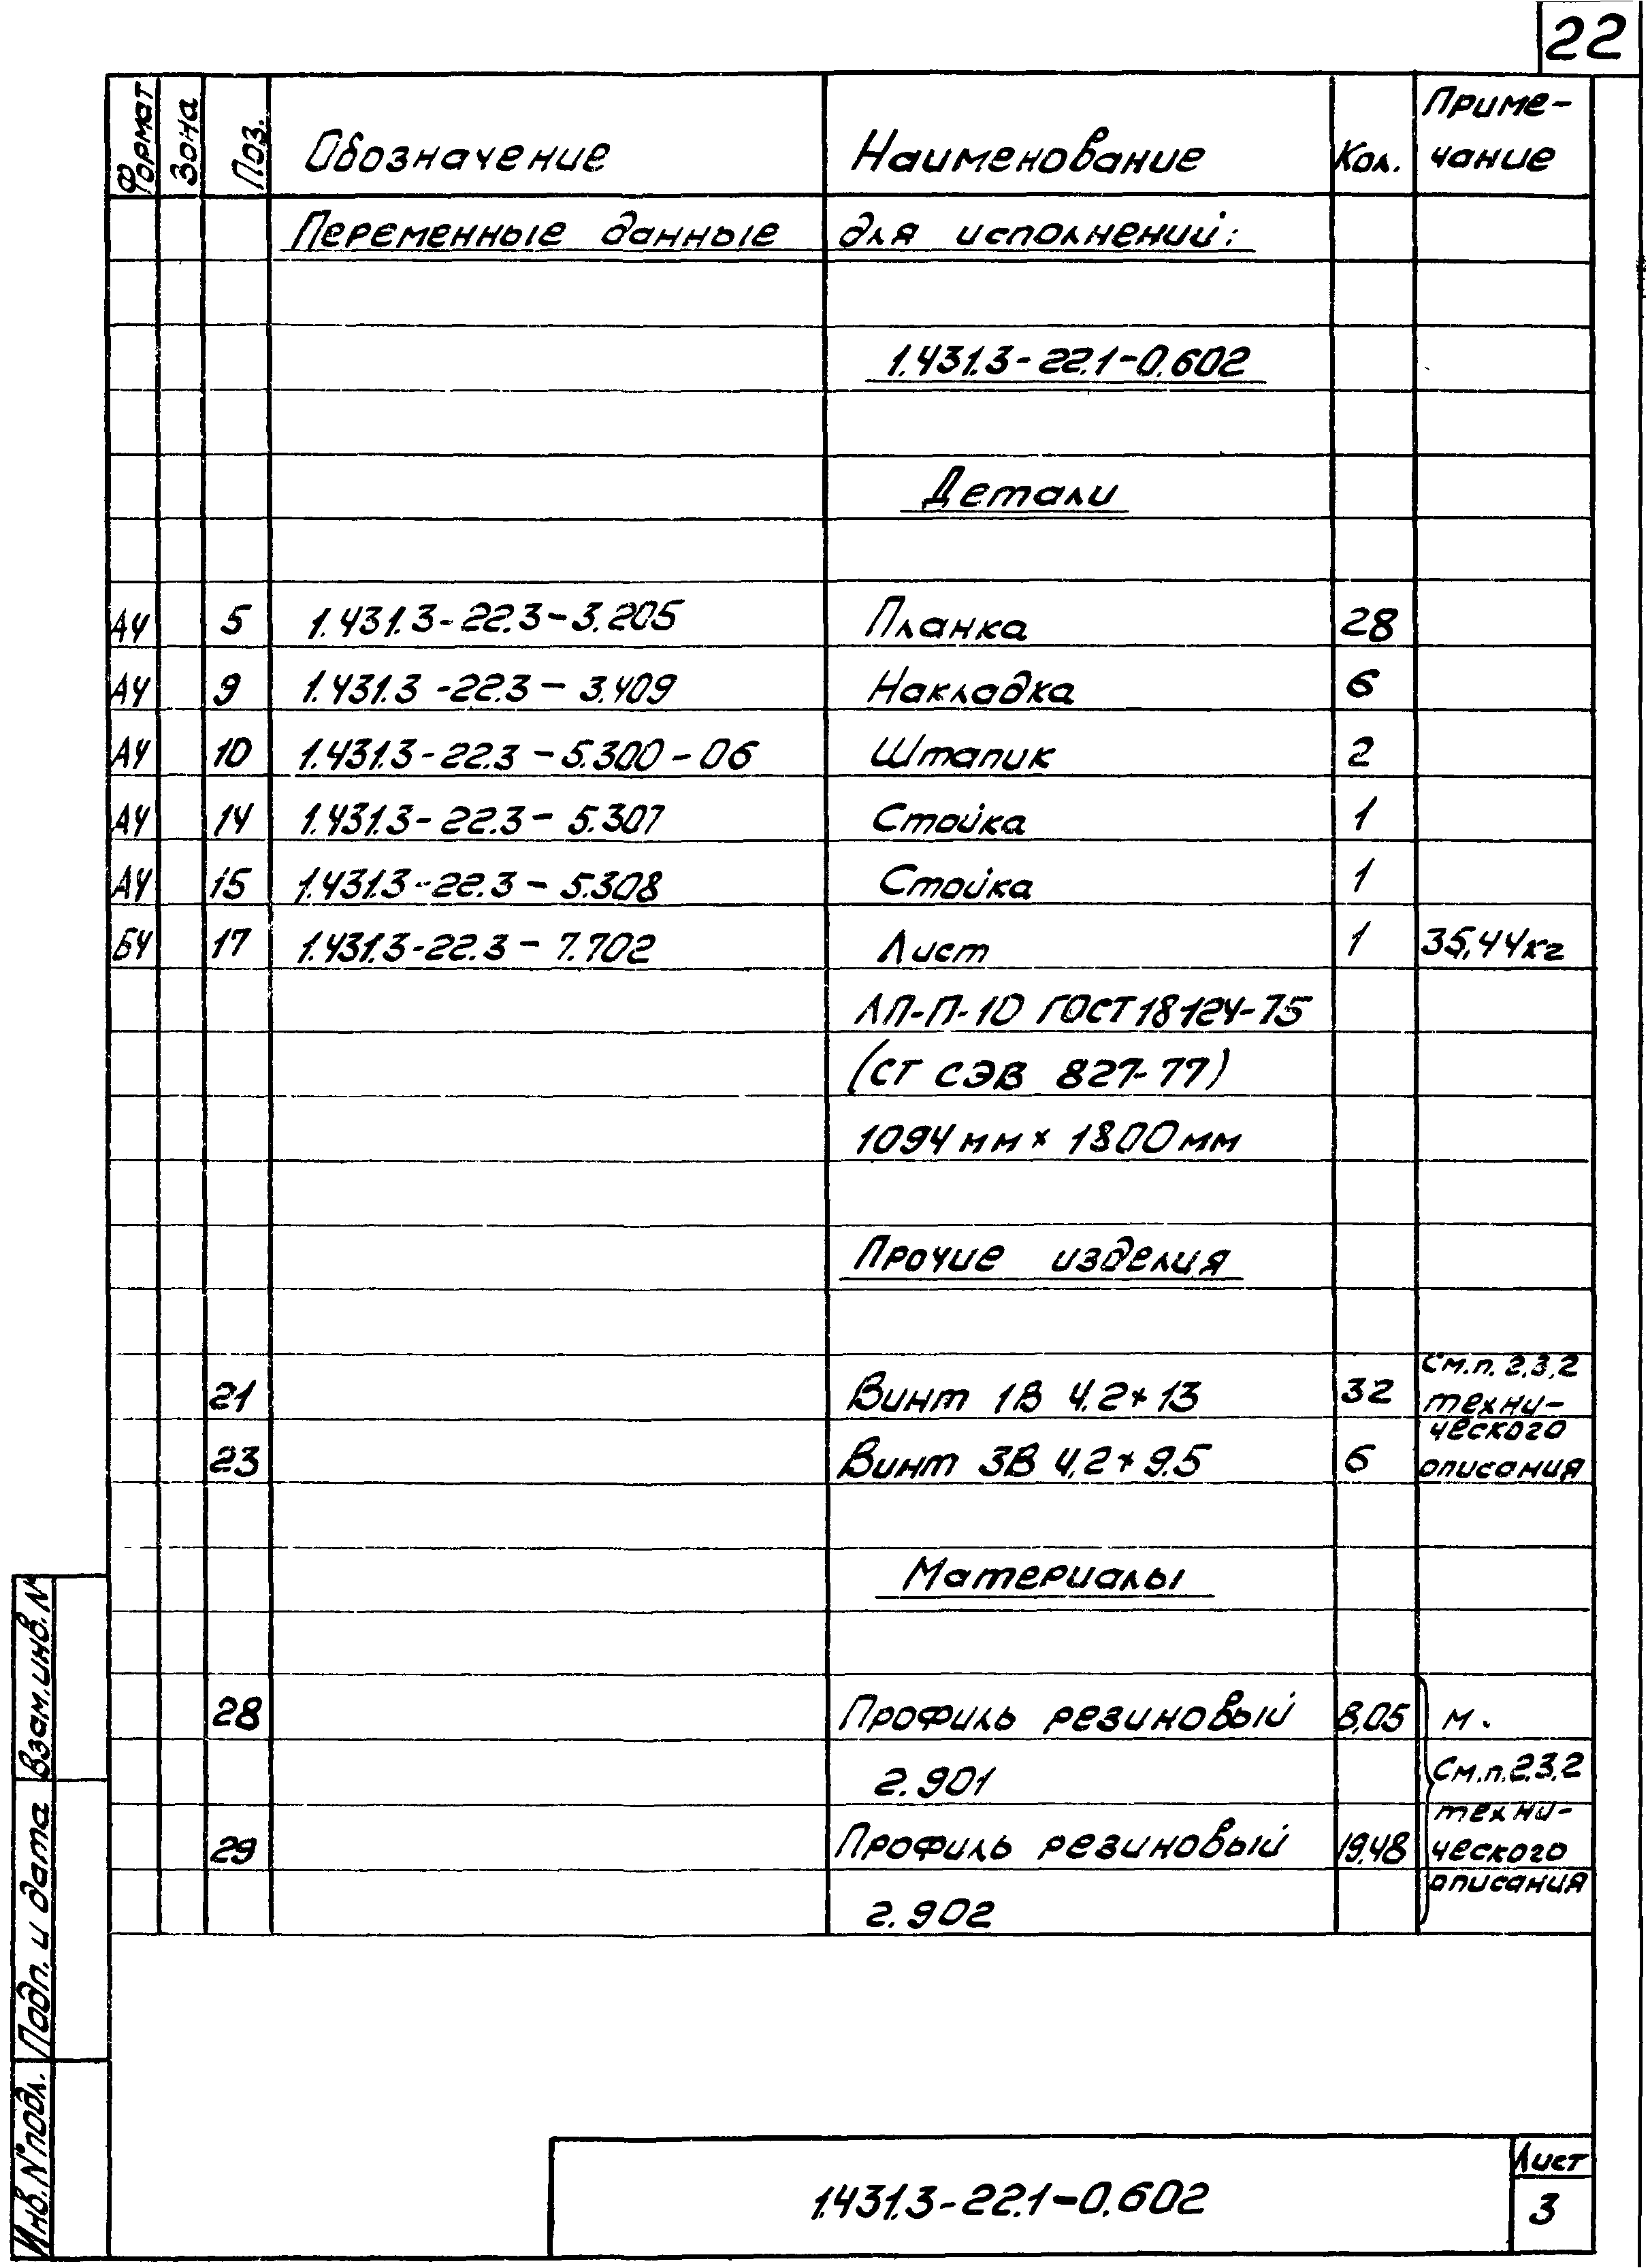 22
Формат Зона Поз. Обозначение Наименование Кол. Приме-
чание
Переменные данные для исполнений:
1.431.3-22.1-0.602
Детали
А4 5 1.431.3-22.3-3.205 Планка 28
А4 9 1.431.3-22.3-3.409 Накладка 6
А4 10 1.431.3-22.3-5.300-06 Штапик 2
А4 14 1.431.3-22.3-5.307 Стойка 1
А4 15 1.431.3-22.3-5.308 Стойка 1
БЧ 17 1.431.3-22.3-7.702 Лист 1 35,44кг
АП-П-10 ГОСТ 18124-75
(СТ СЭВ 827-77)
1094 мм × 1800 мм
Прочие изделия
21 Винт 1В 4.2×13 32 См.п. 2.3.2
техни-
ческого
23 Винт 3В 4,2×9.5 6 описания
Материалы
28 Профиль резиновый 8,05 м.
2.901 См.п.2.3.2
техни-
29 Профиль резиновый 19.48 ческого
описания
2.902
Взам.инв.N
Подп. и дата
Инв.N°подл.
1.431.3-22.1-0.602
Лист
3